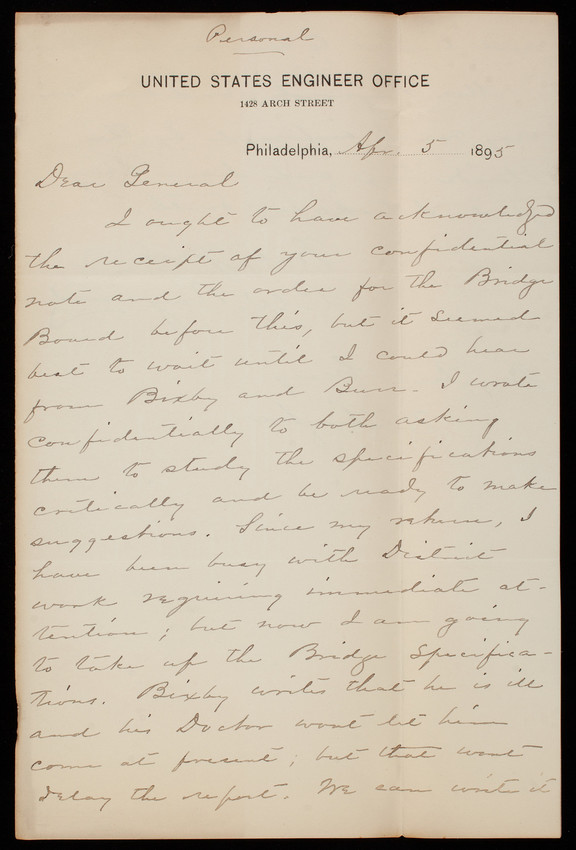 Personal
UNITED STATES ENGINEER OFFICE
1428 ARCH STREET
Philadelphia, Apr. 5 1895
Dear General
I ought to have acknowledged
the receipt of your confidential
note and the order for the Bridge
Board before this, but it seemed
best to wait until I could hear
from Bixby and Burr. I wrote
confidentially to both asking
them to study the specifications
critically and be ready to make
suggestions. Since my return, I
have been busy with District
work requiring immediate at-
tention; but now I am going
to take up the Bridge Specifica-
tions. Bixby writes that he is ill
and his Doctor wont let him
come at present; but that wont
delay the report. We can write it